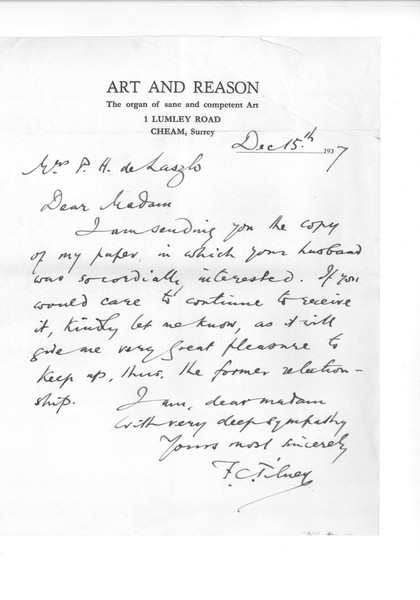 ART AND REASON
The organ of sane and competent Art
1 LUMLEY ROAD
CHEAM, Surrey
Dec 15.th 1937
Mrs P. H. de Laszlo
Dear Madam
I am sending you the copy
of my paper, in which your husband
was so cordially interested. If you
would care to continue to receive
it, kindly let me know, as it will
give me very great pleasure to
keep up, thus, the former relation-
ship. I am, dear madam
with very deep sympathy
Yours most sincerely
F. C. Tilney